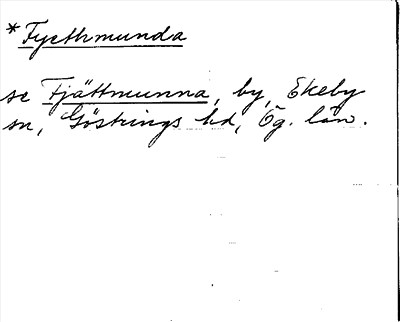 *Fyethmunda
se Fjättmunna, by, Ekeby
sn, Göstrings hd, Ög. län.